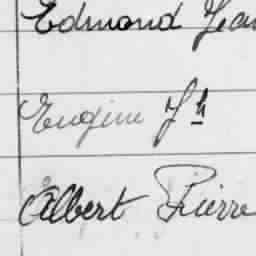 Edmond Jean
Eugène Jh
Albert Pierre